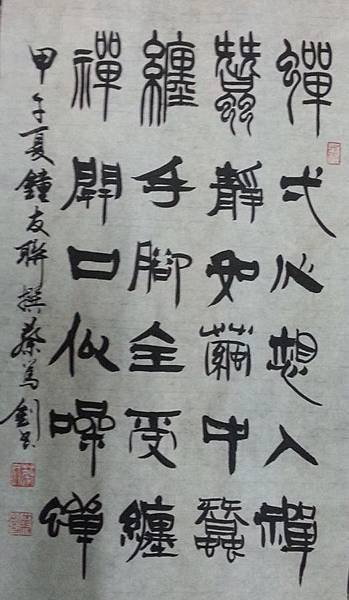 蟬弌心想入禪
蠶靜如繭中蠶
纏手腳全受纏
禪開口似噪蟬
甲午夏鐘友聯撰蔡篤釗書